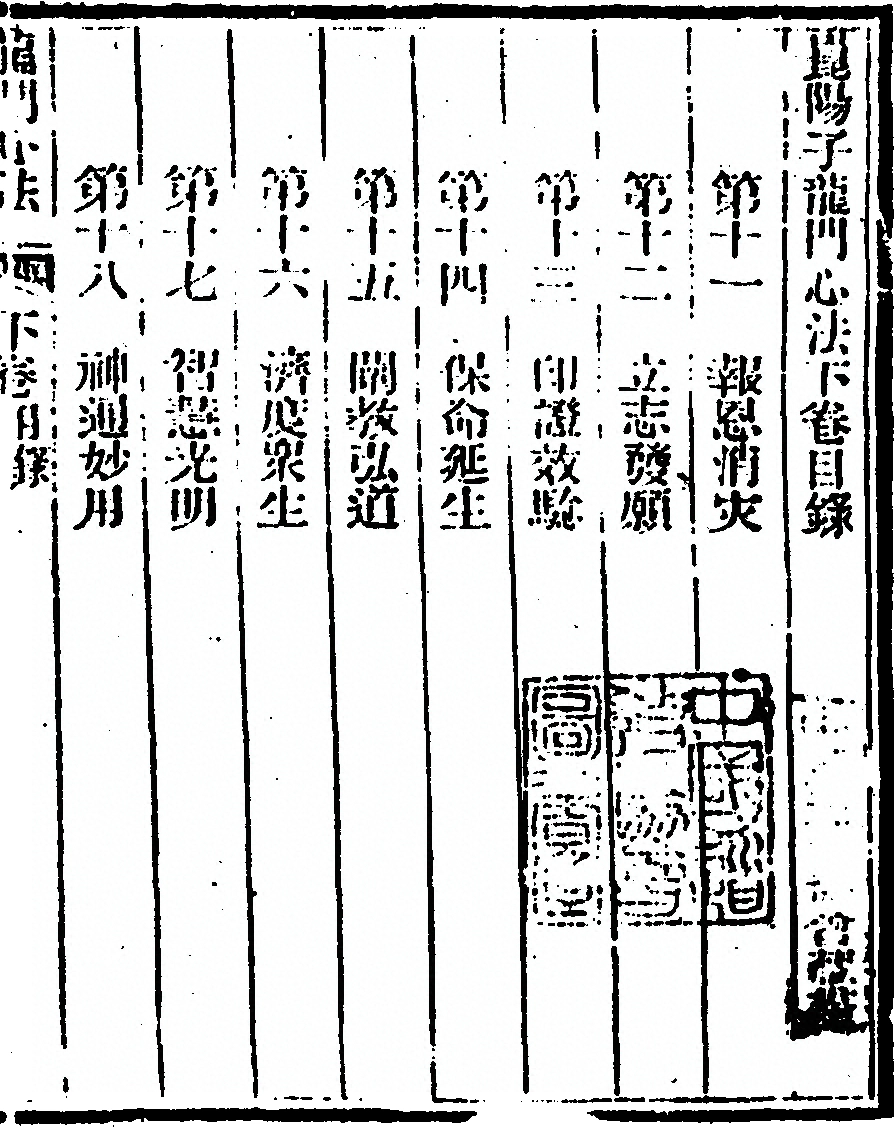 崑陽子龍門心法下卷目錄
第十一　報恩消灾
第十二　立志發願
第十三　印證效驗
第十四　保命延生
第十五　闡教弘道
第十六　濟度衆生
第十七　智慧光明
第十八　神通妙用
龍門心法　下卷目錄